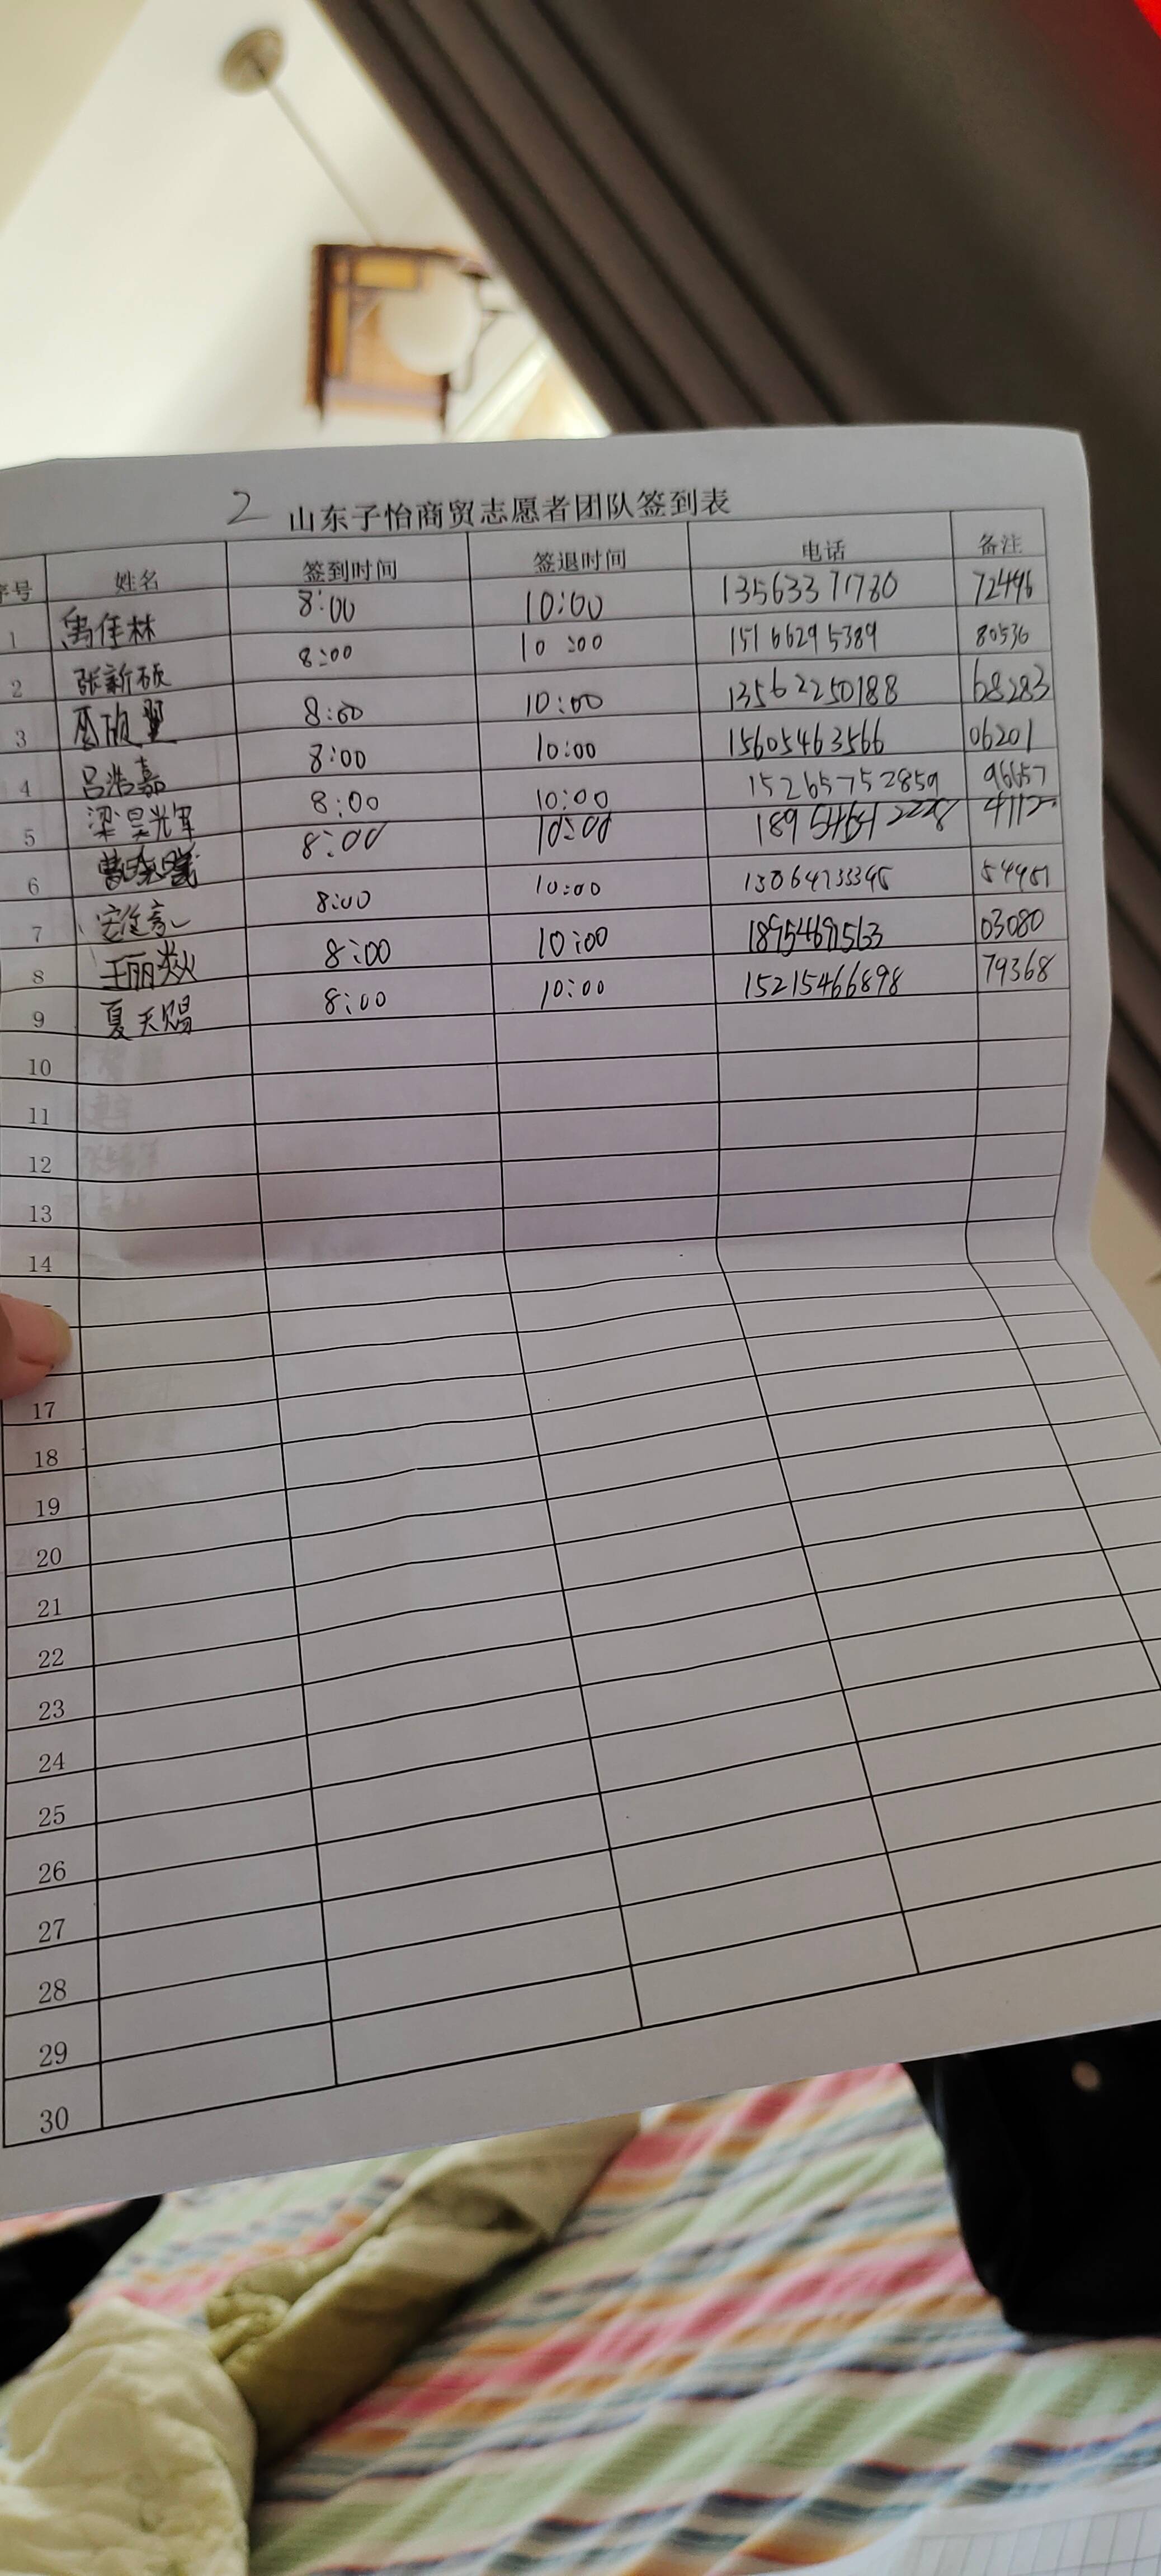 2 山东子怡商贸志愿者团队签到表
序号 姓名 签到时间 签退时间 电话 备注
1 禹佳林 8:00 10:00 13563371780 72496
2 张新硕 8:00 10:00 15166295389 80536
3 8:00 10:00 13562250188 68283
4 吕浩嘉 8:00 10:00 15605463566 06201
5 梁昊光军 8:00 10:00 152657752859 96657
6 8:00 10:00
7 8:00 10:00
8 王丽焱 8:00 10:00 03080
9 夏天赐 8:00 10:00 15215466898 79368
10
11
12
13
14
17
18
19
20
21
22
23
24
25
26
27
28
29
30